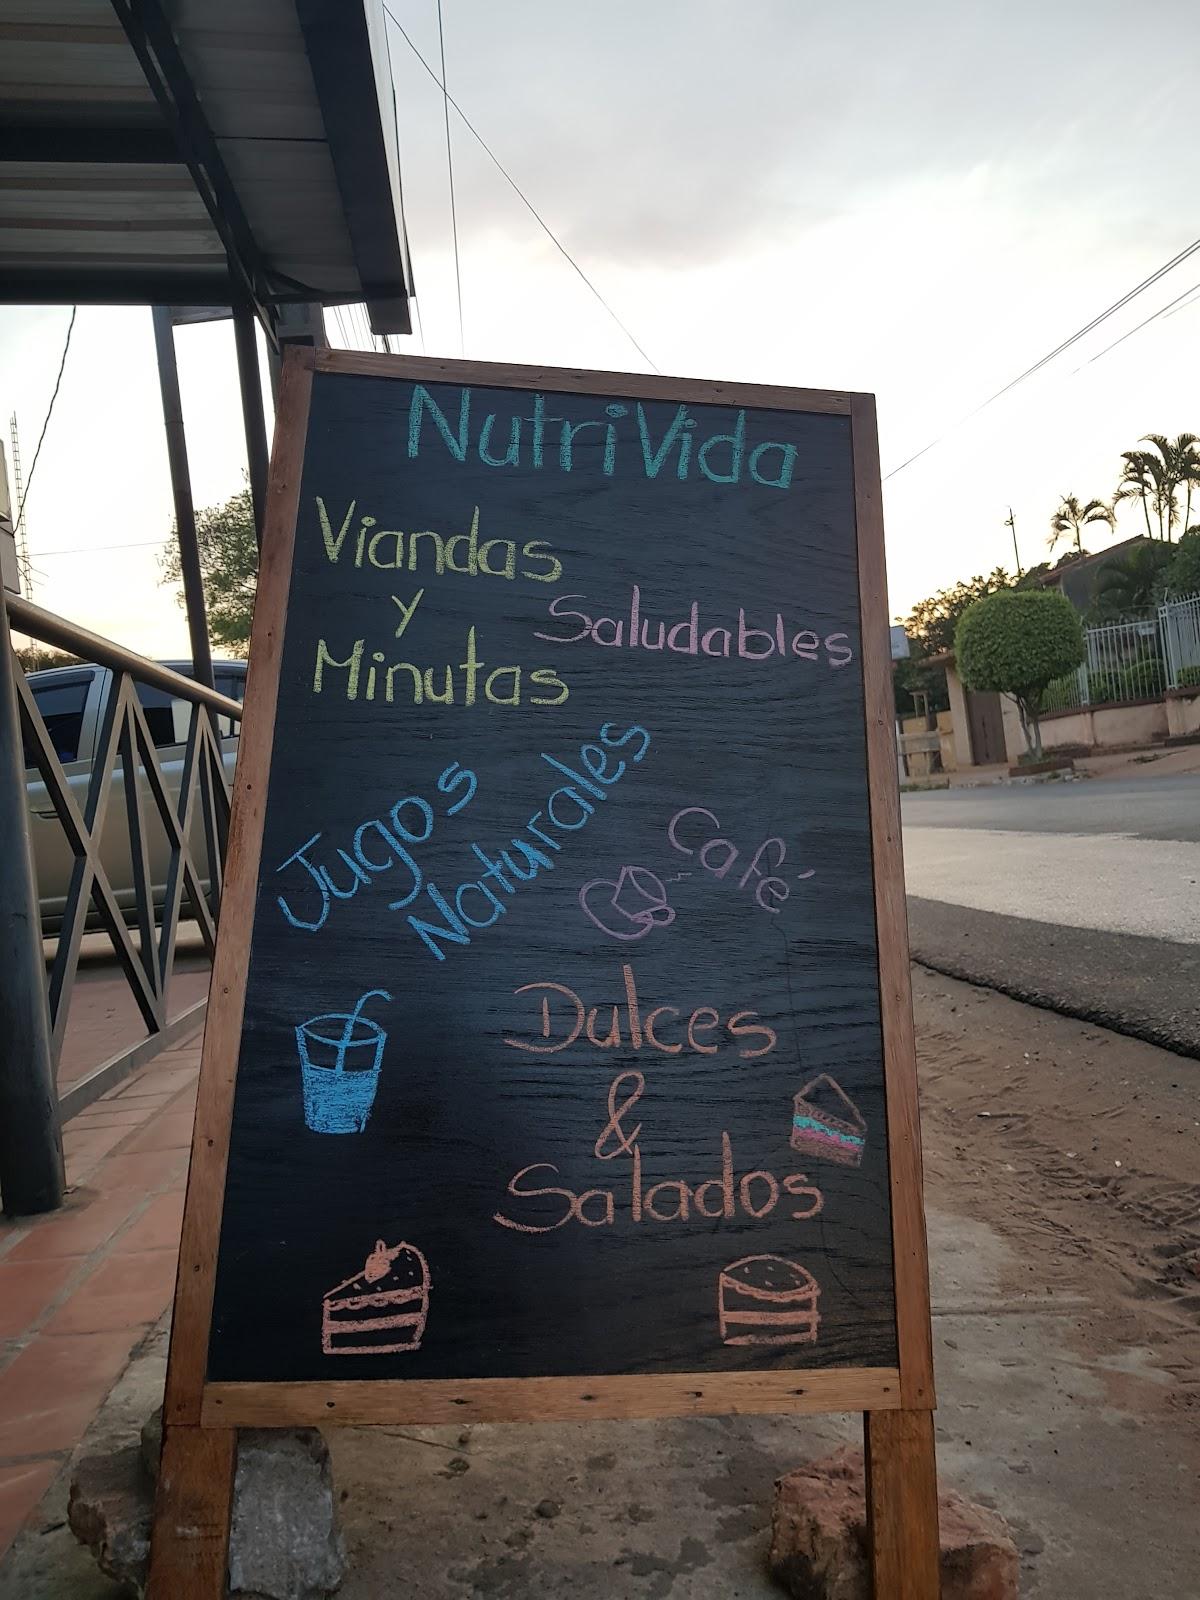 NutriVida
Viandas
y
Minutas
Saludables
Jugos
Naturales
Café
Dulces
&
Salados